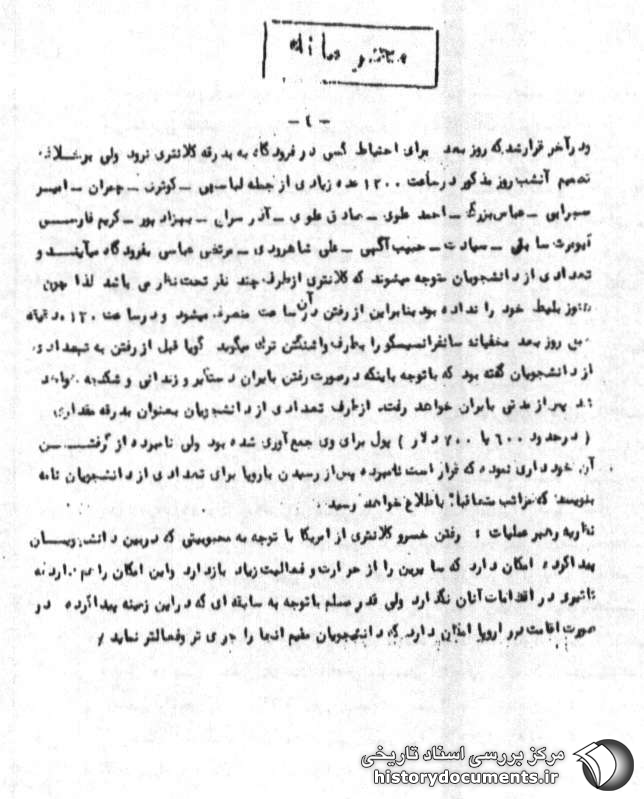 محرمانه
- ٤ -
ودرآخر قرارشد که روز بعد برای احتیاط کسی در فرودگاه به بدرقه کلانتری نرود ولی برخلاف
تصمیم آنشب روز مذکور درساعت ۱۲۰۰ عده زیادی از جمله لباسچی - کوثری - چمران - امیر
عباس‌بزرگ - احمد علوی - صادق علوی - آذر سران - بهزادپور - کریم فارسی
سابقی - سیادت - حبیب آگهی - علی شاهرودی - مرتضی عباسی بفرودگاه میآیند و
تعدادی از دانشجویان متوجه میشوند که کلانتری ازطرف چند نفر تحت نظر می باشد لذا چون
هنوز بلیط خود را نداده بود بنابراین از رفتن در آن ساعت منصرف میشود و درساعت ۱۲۰ دقیقه
روز بعد مخفیانه سانفرانسیسکو را بطرف واشنگتن ترک میگوید گویا قبل از رفتن به تعدادی
از دانشجویان گفته بود که باتوجه باینکه درصورت رفتن بایران دستگیر و زندانی و شکنجه خواهد
شد پس از مدتی بایران خواهد رفت. ازطرف تعدادی از دانشجویان بعنوان بدرقه مقداری
( درحدود ۶۰۰ یا ۷۰۰ دلار ) پول برای وی جمع آوری شده بود ولی نامبرده از گرفتن
آن خودداری نموده که قرار است نامبرده پس از رسیدن باروپا برای تعدادی از دانشجویان نامه
بنویسد که مراتب متعاقباً باطلاع خواهد رسید.
نظریه رهبر عملیات : رفتن خسرو کلانتری از امریکا با توجه به محبوبیتی که دربین دانشجویان
پیدا کرده امکان دارد که سایرین را از حرارت و فعالیت زیاد بازدارد واین امکان را هم دارد که
تاثیری در اقدامات آنان نگذارد ولی قدر مسلم باتوجه به سابقه ای که دراین زمینه پیدا کرده در
صورت اقامت در اروپا امکان دارد که دانشجویان مقیم آنجا را جری تر وفعالتر نماید /
مرکز بررسی اسناد تاریخی
historydocuments.ir